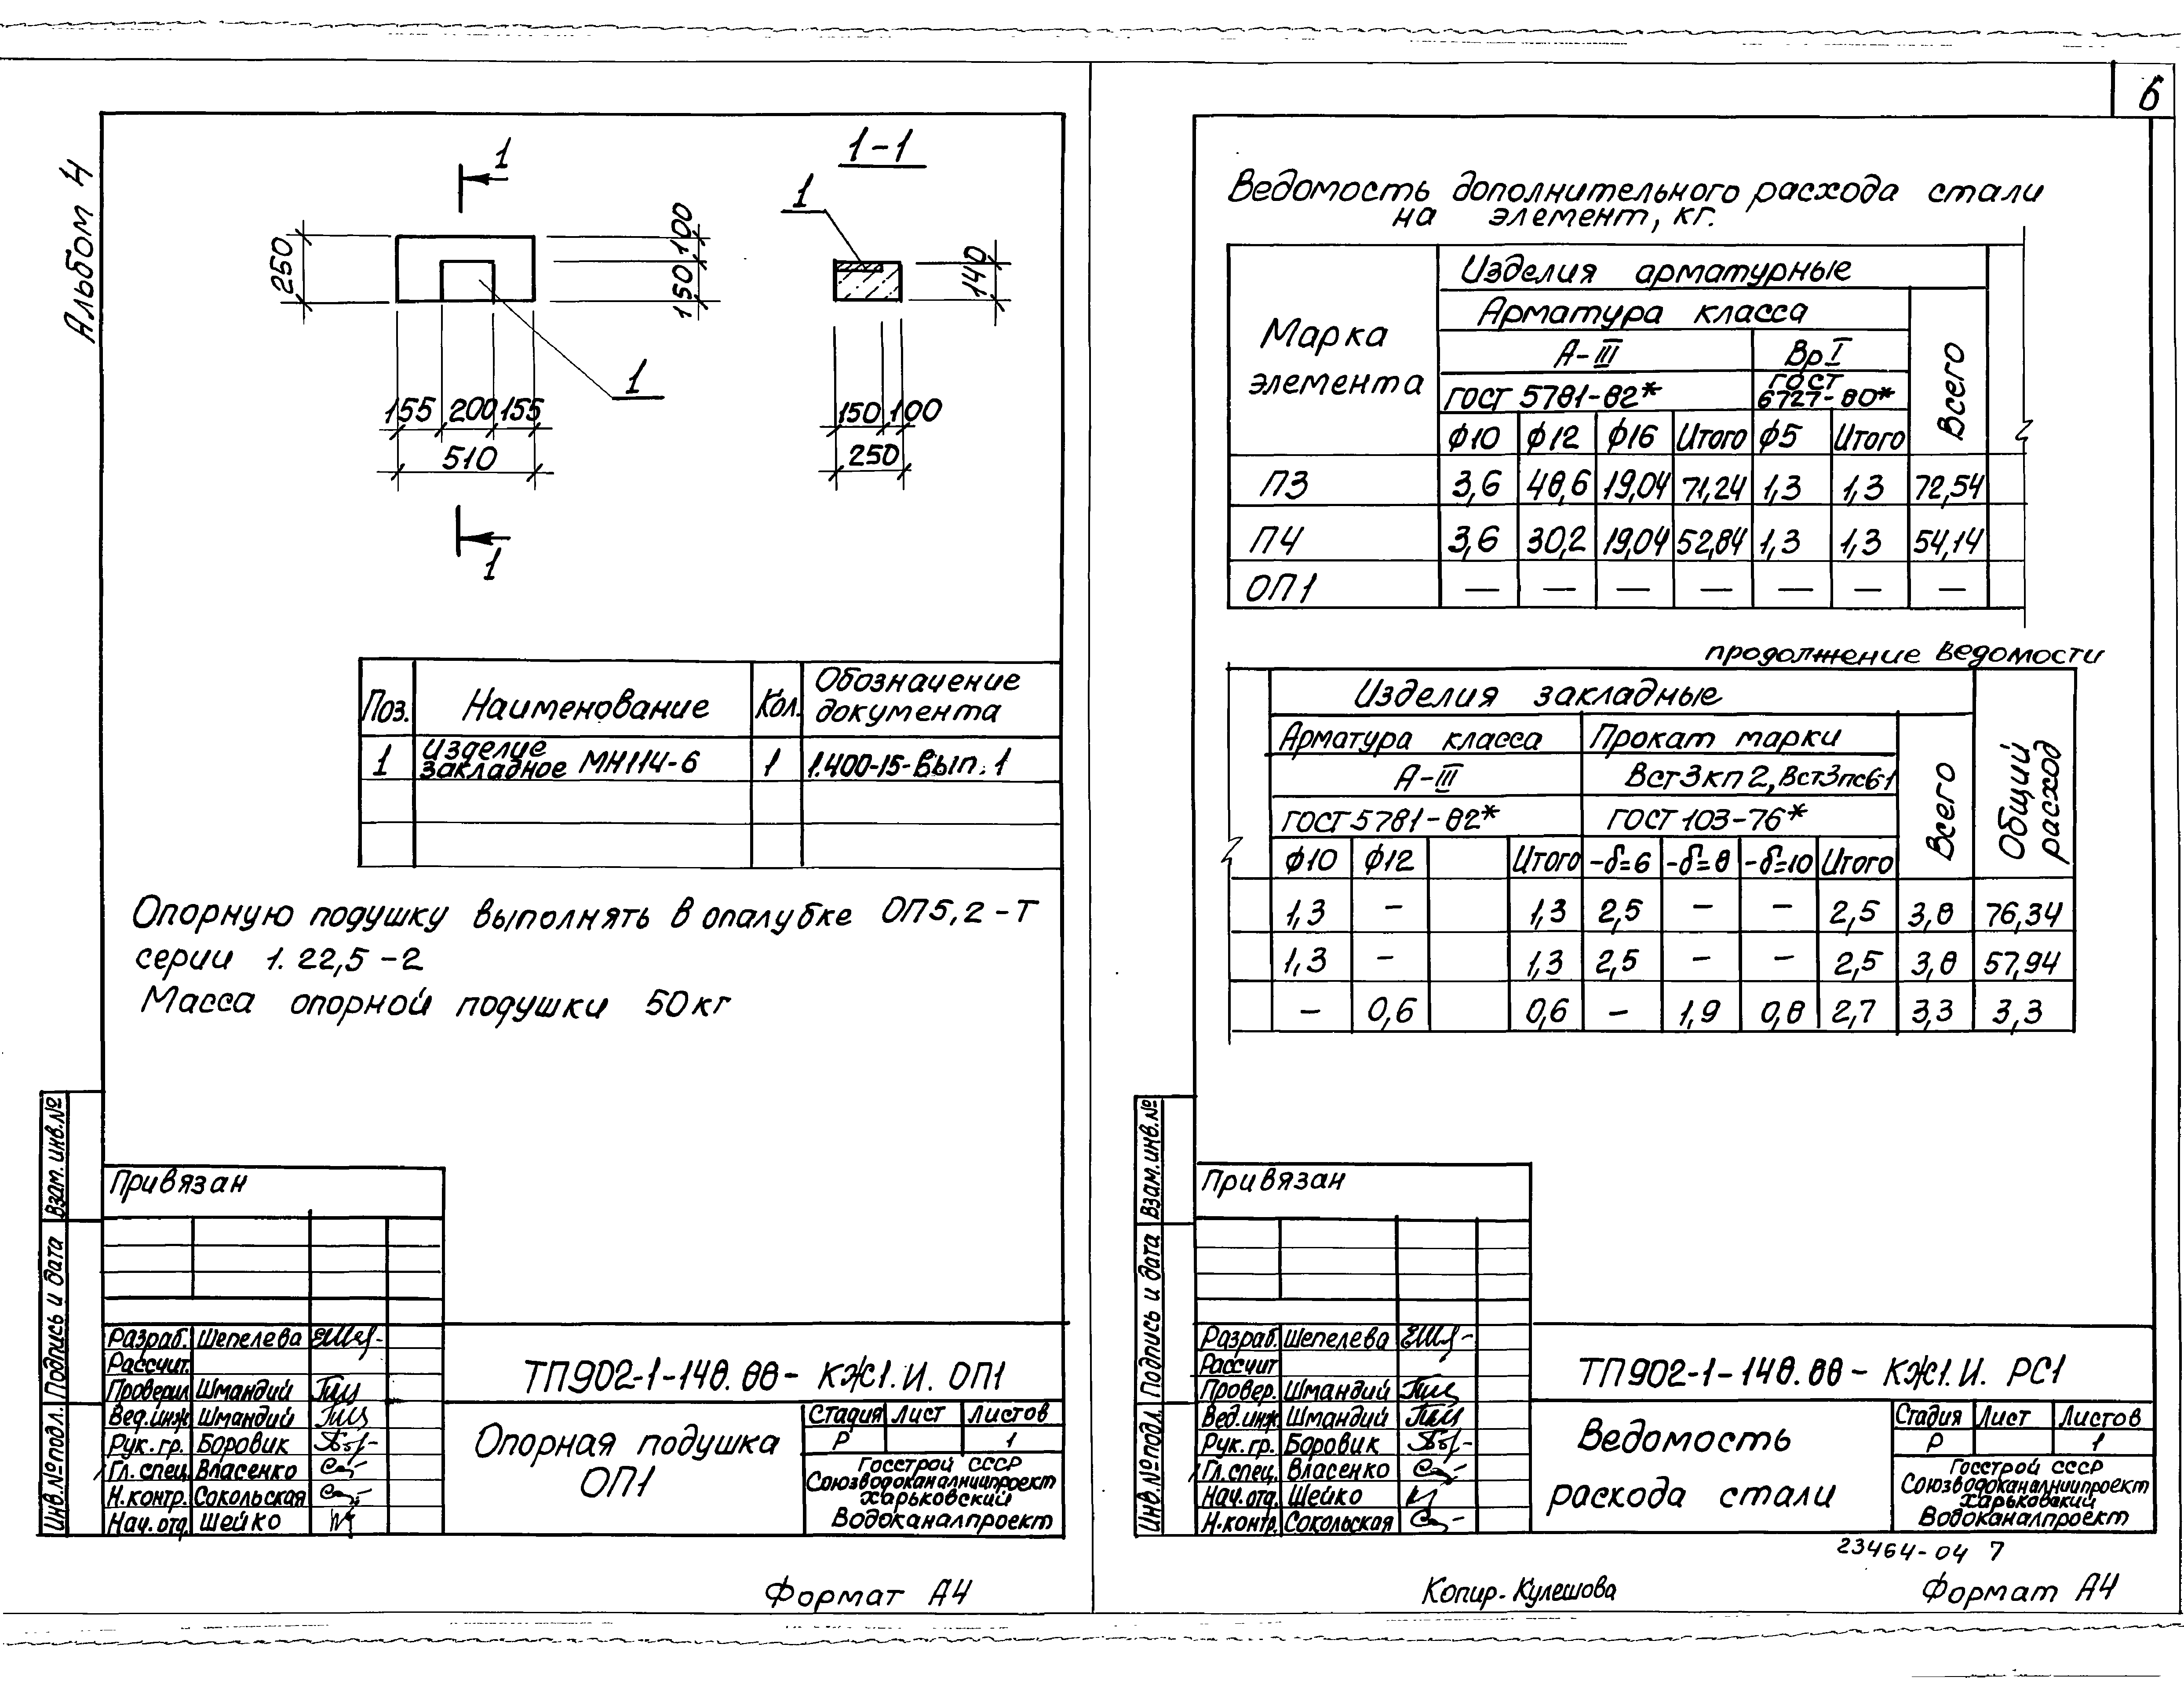 6
Альбом 4
1
1-1
1
250
100
150
140
1
155 200 155
510
150 100
250
1
Поз. Наименование Кол. Обозначение документа
1 Изделие закладное МН114-6 1 1.400-15-Вып. 1
Опорную подушку выполнять в опалубке ОП5,2-Т
серии 1.22,5-2
Масса опорной подушки 50кг
Взам. инв.№
Подпись и дата
Инв.№подл.
Привязан
Разраб. Шепелева
Рассчит.
Проверил Шмандий
Вед.инж Шмандий
Рук.гр. Боровик
Гл.спец. Власенко
Н.контр. Сокольская
Нач.отд. Шейко
ТП902-1-148.88- КЖ1.И. ОП1
Опорная подушка
ОП1
Стадия Лист Листов
Р 1
Госстрой СССР
Союзводоканалниипроект
Харьковский
Водоканалпроект
Формат А4
Ведомость дополнительного расхода стали
на элемент, кг.
Марка элемента
Изделия арматурные
Арматура класса
Всего
А-III Вр I
ГОСТ 5781-82* ГОСТ 6727-80*
ф10 ф12 ф16 Итого ф5 Итого
П3 3,6 48,6 19,04 71,24 1,3 1,3 72,54
П4 3,6 30,2 19,04 52,84 1,3 1,3 54,14
ОП1 — — — — — — —
продолжение ведомости
Изделия закладные
Арматура класса Прокат марки
Всего
Общий расход
А-III Вст3кп2, Вст3пс6-1
ГОСТ 5781-82* ГОСТ 103-76*
ф10 ф12 Итого -δ=6 -δ=8 -δ=10 Итого
1,3 – 1,3 2,5 – – 2,5 3,8 76,34
1,3 – 1,3 2,5 – – 2,5 3,8 57,94
– 0,6 0,6 – 1,9 0,8 2,7 3,3 3,3
Взам.инв.№
Подпись и дата
Инв.№подл.
Привязан
Разраб. Шепелева
Рассчит
Провер. Шмандий
Вед.инж Шмандий
Рук.гр. Боровик
Гл.спец. Власенко
Нач.отд. Шейко
Н.контр. Сокольская
ТП902-1-148.88- КЖ1.И. РС1
Ведомость
расхода стали
Стадия Лист Листов
Р 1
Госстрой СССР
Союзводоканалниипроект
Харьковский
Водоканалпроект
23464-04 7
Копир.-Кулешова
Формат А4